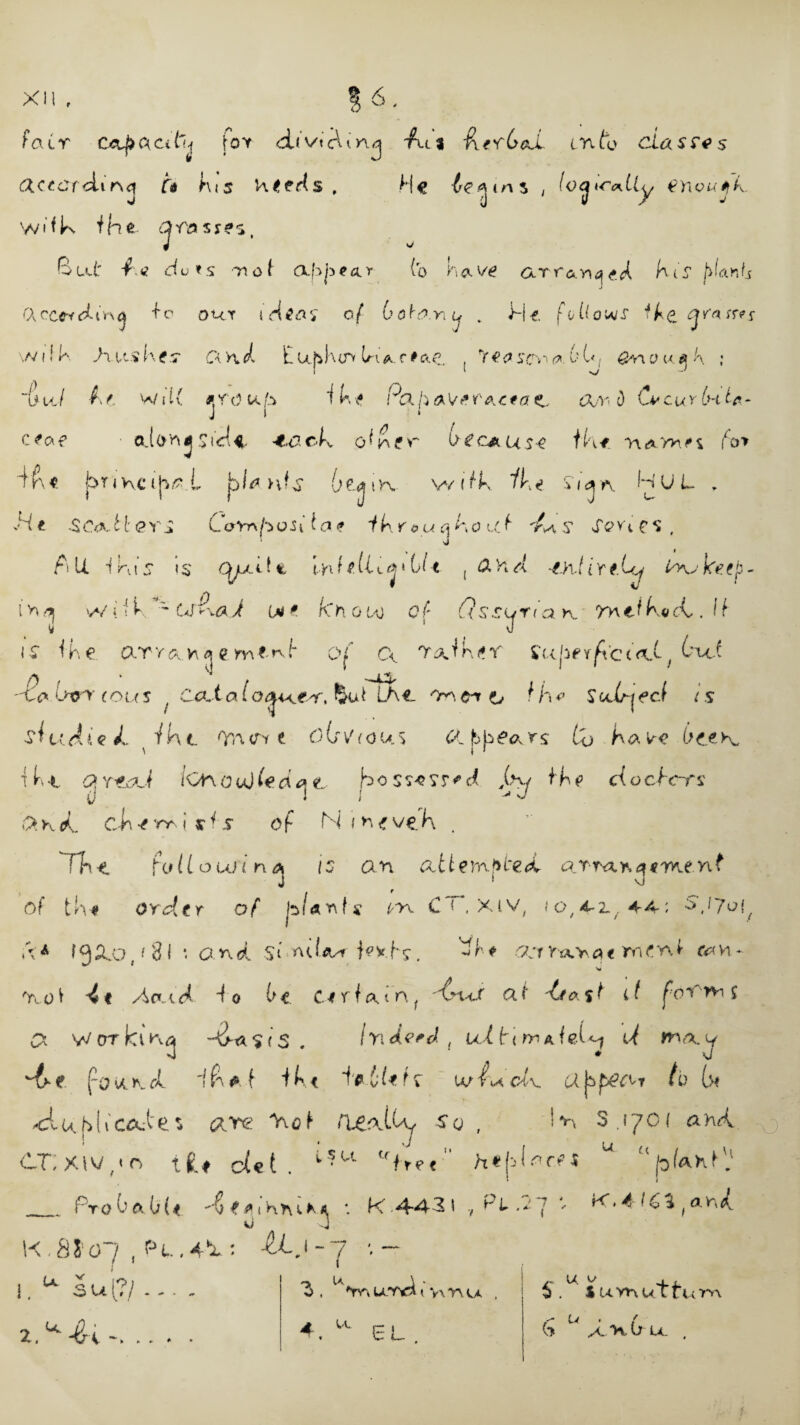 XII. § 6.
fair capacity for dividing his herbal into classes
according to his needs. He begins, logically enough
with the grasses.
But he does not appear to have arranged his plants
according to our ideas of botany. He follows the grasses
with rushes and Euphorbiaceae, reasonably enough;
but he will group the Papaveraceae and Cucurbita-
ceae alongside each other because the names for
the principal plants begin with the sign HUL.
He scatters Compositae throughout his series.
All this is quite intelligible, and entirely in keep-
ing with what we know of Assyrian method. It
is the arrangement of a rather superficial, but
laborious, cataloguer. But the more the subject is
studied the more obvious appears to have been
the great knowledge possessed by the doctors
and chemists of Nineveh.
The following is an attempted arrangement
of the order of plants in CT. XIV, 10, 42, 44; S, 1701,
1920, 181; and similar texts. The arrangement can-
not be said to be certain, but at least it forms
a working basis. Indeed, ultimately it may
be found that the tablets which appear to be
duplicates are not really so, In S.1701 and
CT. XIV, 10 the det. iṣu "tree" replaces u "plant".
Probable beginning: K.4431, PL.27; K.4163, and
K.8807, PL.,41: ll.1-7:—
1. u šu[?]....
2. u bi.....
3. u murdinnu.
4. u EL.
5. u šumuttum
6 u inbu.